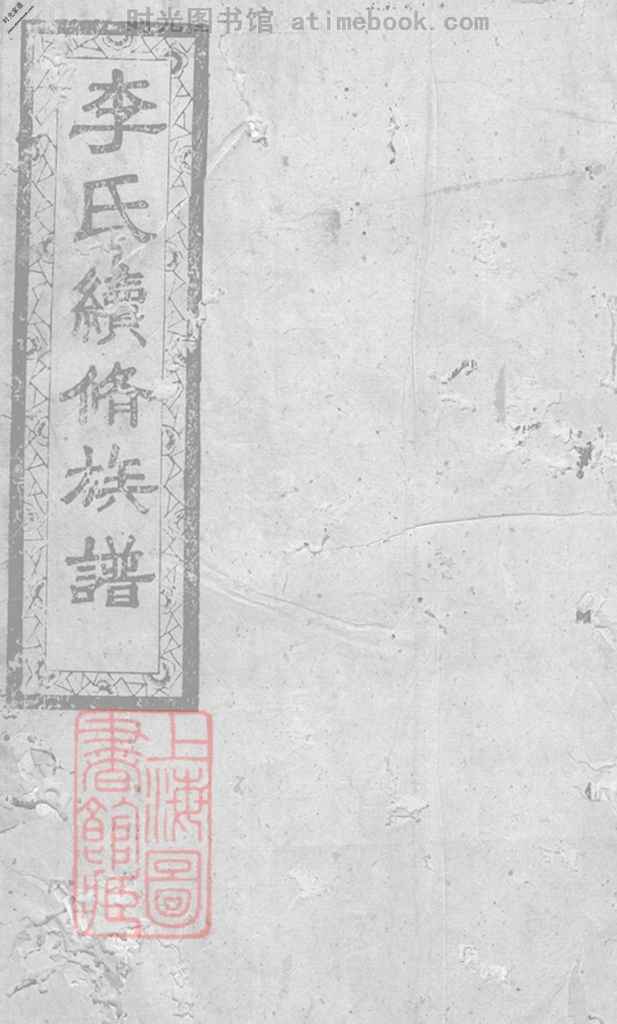 时光图书馆 atimebook.com
李氏續脩族譜
上海圖
書館藏